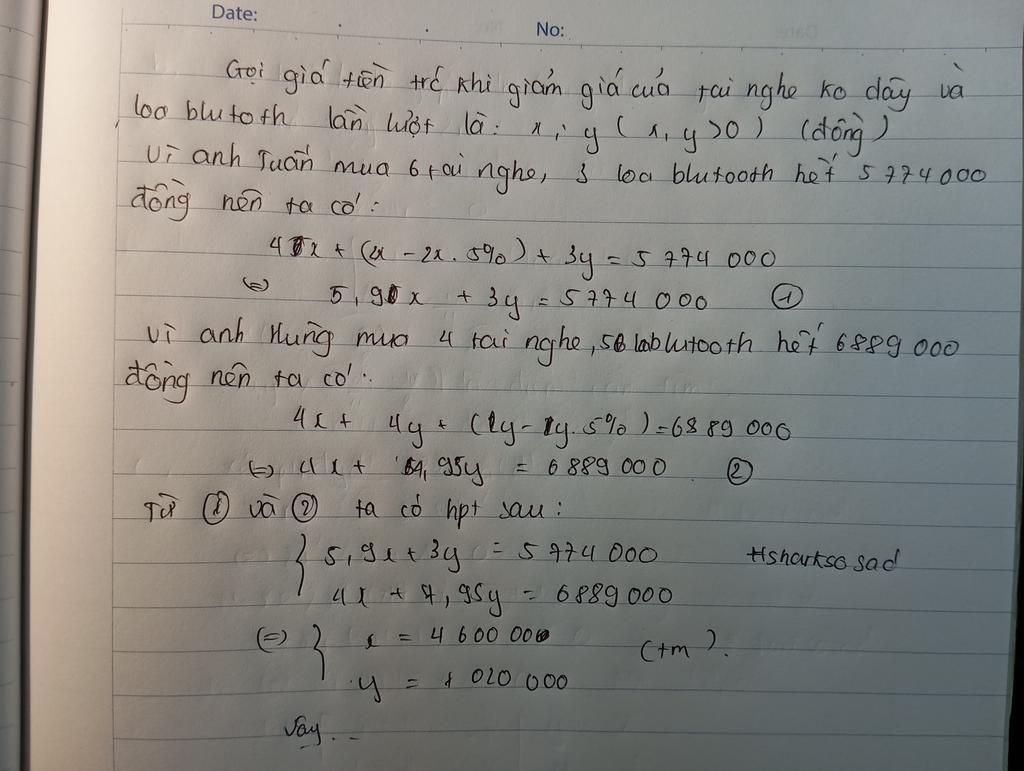 Date:
No:
Gọi giá tiền trc khi giảm giá của tai nghe ko dây và
loa blutoth lần lượt là: x; y (x, y >0) (đồng)
Vì anh Tuấn mua 6 tai nghe, 3 loa blutooth hết 5 774 000
đồng nên ta có:
4x + (2x - 2x. 5%) + 3y = 5 774 000
(=) 5,9x + 3y = 5774 000 ①
Vì anh Hưng mua 4 tai nghe, 5 loa blutooth hết 6889 000
đồng nên ta có:
4x + 4y + (1y - 1y. 5%) = 6889 000
(=) 4x + 4,95y = 6889 000 ②
Từ ① và ② ta có hpt sau:
{ 5,9x + 3y = 5 774 000
#sharkso sad
4x + 4,95y = 6889 000
(=) { x = 4 600 000
(tm).
y = 1 020 000
Vậy...